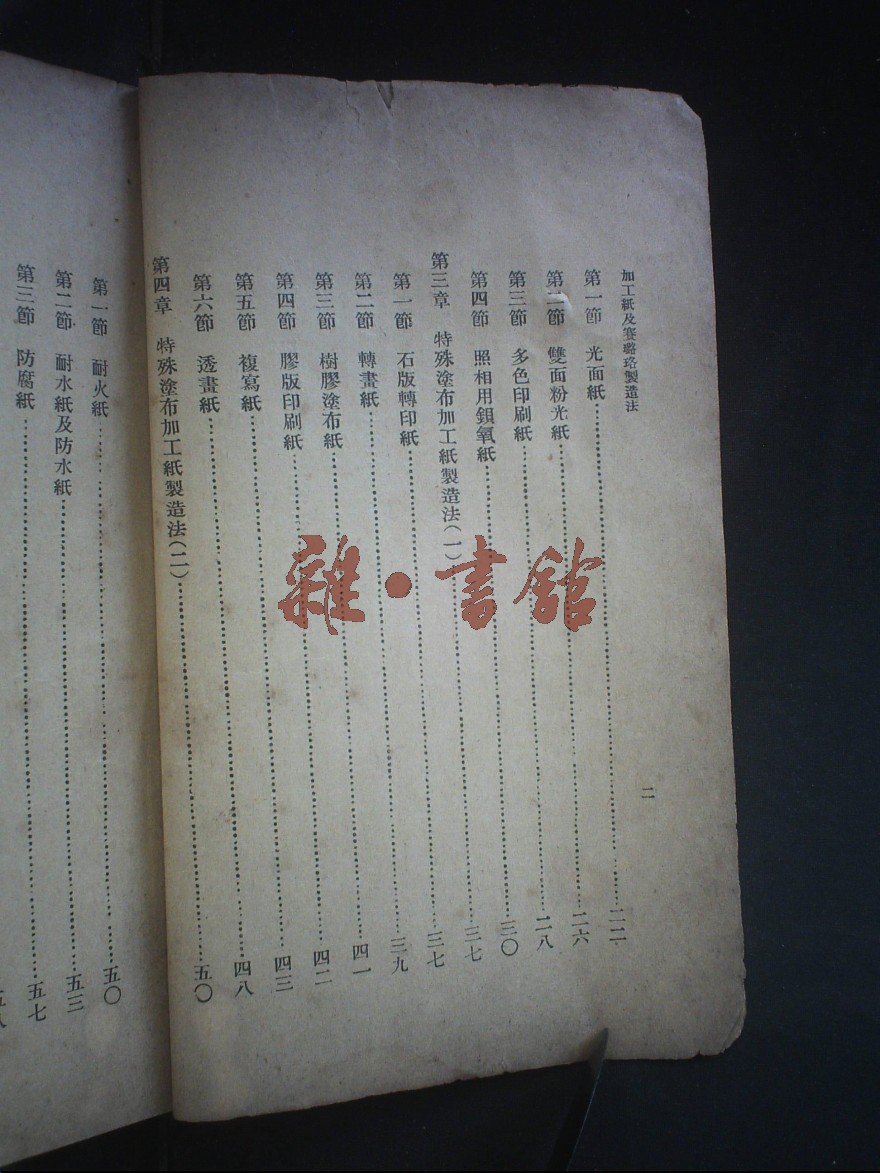 加工紙及賽璐珞製造法
二
第一節 光面紙……二二
第二節 雙面粉光紙……二六
第三節 多色印刷紙……二八
第四節 照相用鋇氧紙……三〇
第三章 特殊塗布加工紙製造法(一)……三七
第一節 石版轉印紙……三七
第二節 轉畫紙……三九
第三節 樹膠塗布紙……四一
第四節 膠版印刷紙……四二
第五節 複寫紙……四三
第六節 透畫紙……四八
第四章 特殊塗布加工紙製造法(二)……五〇
第一節 耐火紙……五〇
第二節 耐水紙及防水紙……五三
第三節 防腐紙……五七
五八
雜·書館